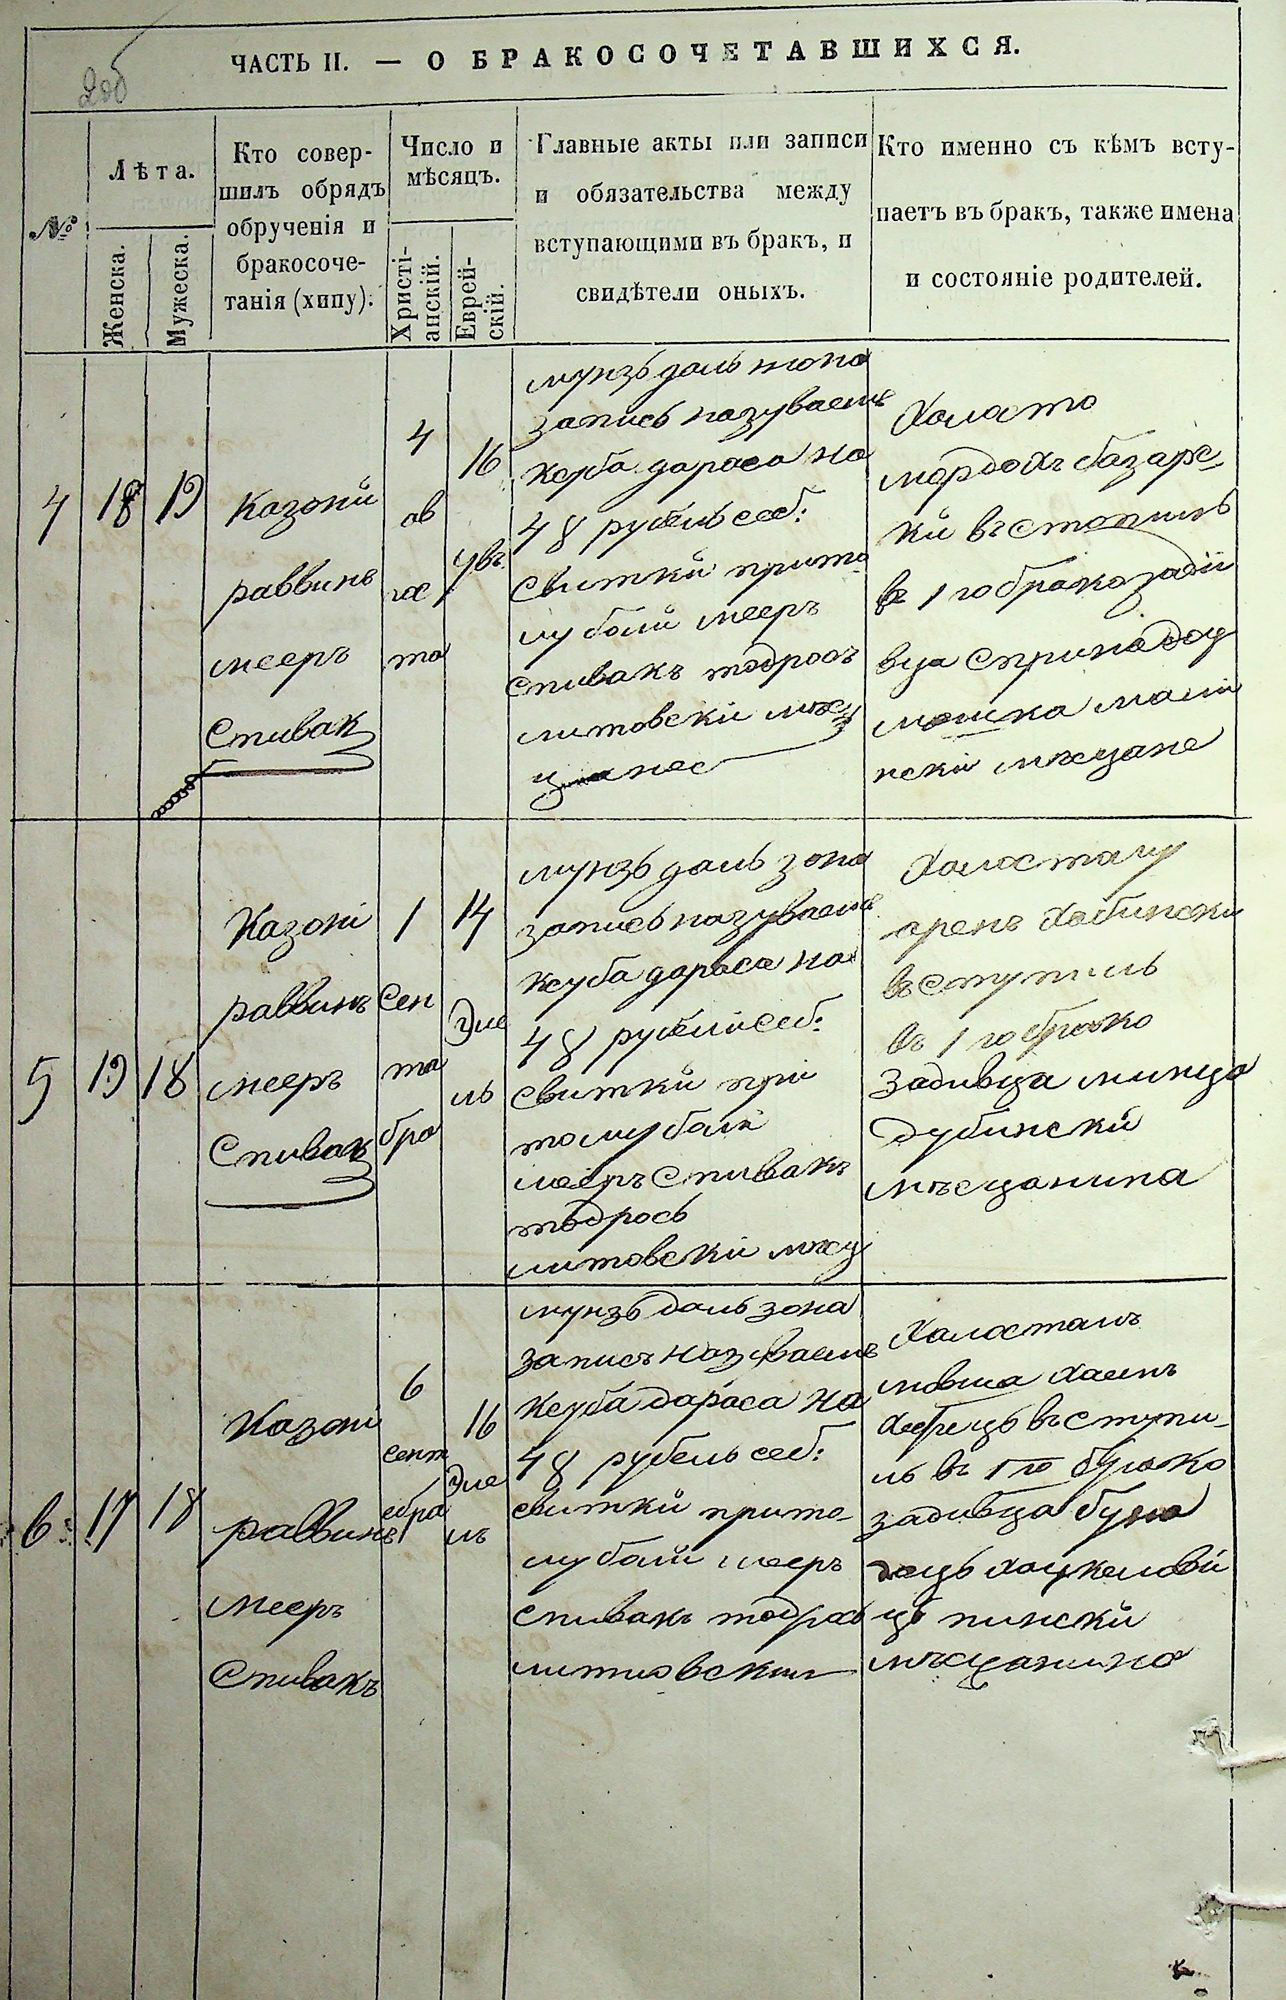 ЧАСТЬ II. — О БРАКОСОЧЕТАВШИХСЯ.
№
Лѣта.
Женска.
Мужеска.
Кто совер-
шилъ обрядъ
обрученія и
бракосоче-
танія (хипу).
Число и
мѣсяцъ.
Христі-
анскій.
Еврей-
скій.
Главные акты или записи
и обязательства между
вступающими въ бракъ, и
свидѣтели оныхъ.
Кто именно съ кѣмъ всту-
паетъ въ бракъ, также имена
и состояніе родителей.
4
18
19
Казоній
раввинъ
мееръ
Спивак
4
ав
гос
та
16
увъ
мунзь даль жона
запись называемъ
Ксуба дараса на
48 рубель себ:
свиткй прито
му болй мееръ
спивакъ тодросъ
литовскіи мѣс
цанес
Холосто
мордохъ базарс-
кй въстопилъ
въ 1 го брако задіи
вца Спринадоц
мошка мали
нскіи мѣсцане
5
19
18
Казоні
раввинъ
мееръ
Спивак
1
сен
та
бра
14
Эле
ль
мунзь даль зона
запись называемъ
Ксуба дараса на
48 рубелй себ:
свиткй при
тому болй
мееръ Спивакъ
тодрось
литовскій мѣсц
Холосталу
аренъ Хабински
въступиль
въ 1 го брако
задивца минца
Дубинскй
мѣсцанина
6
17
18
Казоні
раввинъ
мееръ
Спивакъ
6
сент
ебра
16
Эле
ль
мунзь даль зона
запись называемъ
Ксуба дараса на
48 рубель себ:
свиткй прито-
му болй мееръ
спивакъ тодрось
литовскии
Холосталъ
мовша хаемъ
въступи-
ль въ 1 го брако
задивца буня
доць хацкелови
ць пинскй
мѣсцанина